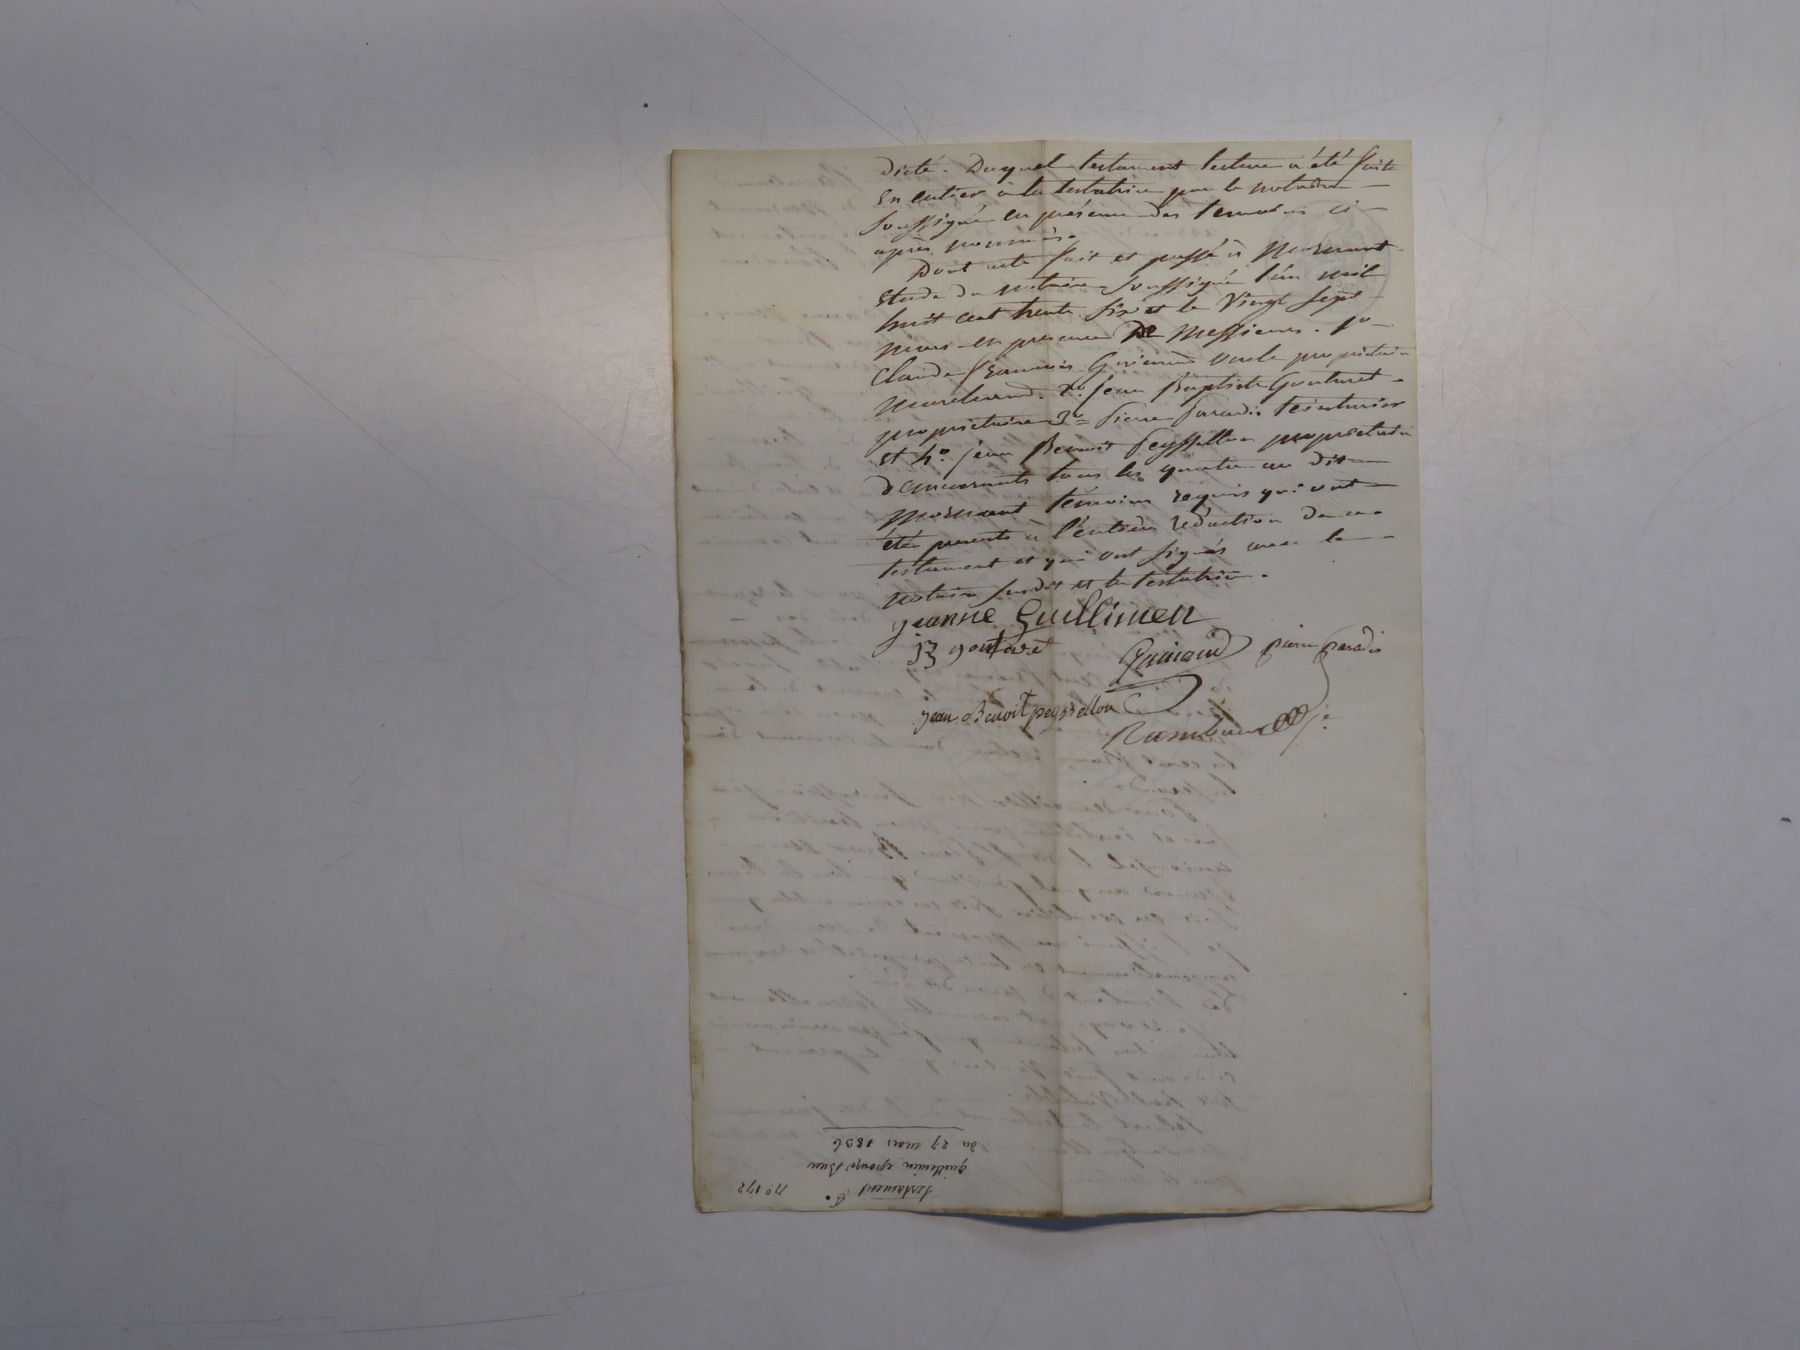 dicté. Duquel testament lecture a été faite
en entier à la testatrice par le notaire
soussigné en présence des temoins ci-
après nommés.
Dont acte fait et passé à Mornant
Etude du notaire soussigné l'an mil
huit cent trente six et le vingt sept
mars en presence de Messieurs. 1º
Claude François Verile propriétaire
Marchand. 2º Jean Baptiste Goutaret
propriétaire 3º Pierre Paradis teinturier
et 4º. Jean Benoit Peyssellon propriétaire
demeurants tous les quatre au dit
Mornant témoins requis qui ont
été presents à l'entière rédaction de ce
testament et qui ont signés avec le
notaire susdit et la testatrice.
jeanne Guillimen
JB goutaret
pierre paradis
jean Benoit peyssellon
testament
nº 192
guillemin épouse
du 27 mars 1836